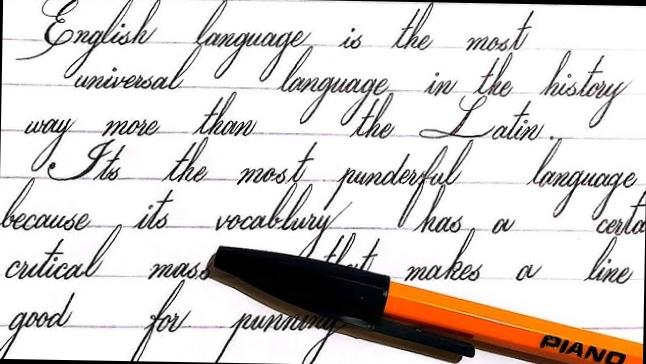 English language is the most
universal language in the history
way more than the Latin.
Its the most punderful language
because its vocablury has a certa
critical mass that makes a line
good for punning
PIANO